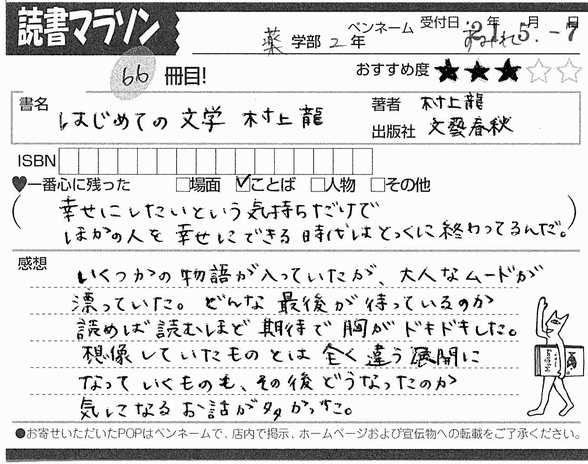 読書マラソン
薬 学部 2 年 ペンネーム 受付日:21年 5月 -7日
66 冊目! おすすめ度 ★★★☆☆
書名 はじめての文学 村上龍
著者 村上龍
出版社 文藝春秋
ISBN
♥一番心に残った □場面 ☑ことば □人物 □その他
(幸せにしたいという気持ちだけで
ほかの人を幸せにできる時代はとっくに終わってるんだ。)
感想
いくつかの物語が入っていたが、大人なムードが
漂っていた。どんな最後が待っているのか
読めば読むほど期待で胸がドキドキした。
想像していたものとは全く違う展開に
なっていくものも、その後どうなったのか
気になるお話が多かった。
●お寄せいただいたPOPはペンネームで、店内で掲示、ホームページおよび宣伝物への転載をご了承ください。